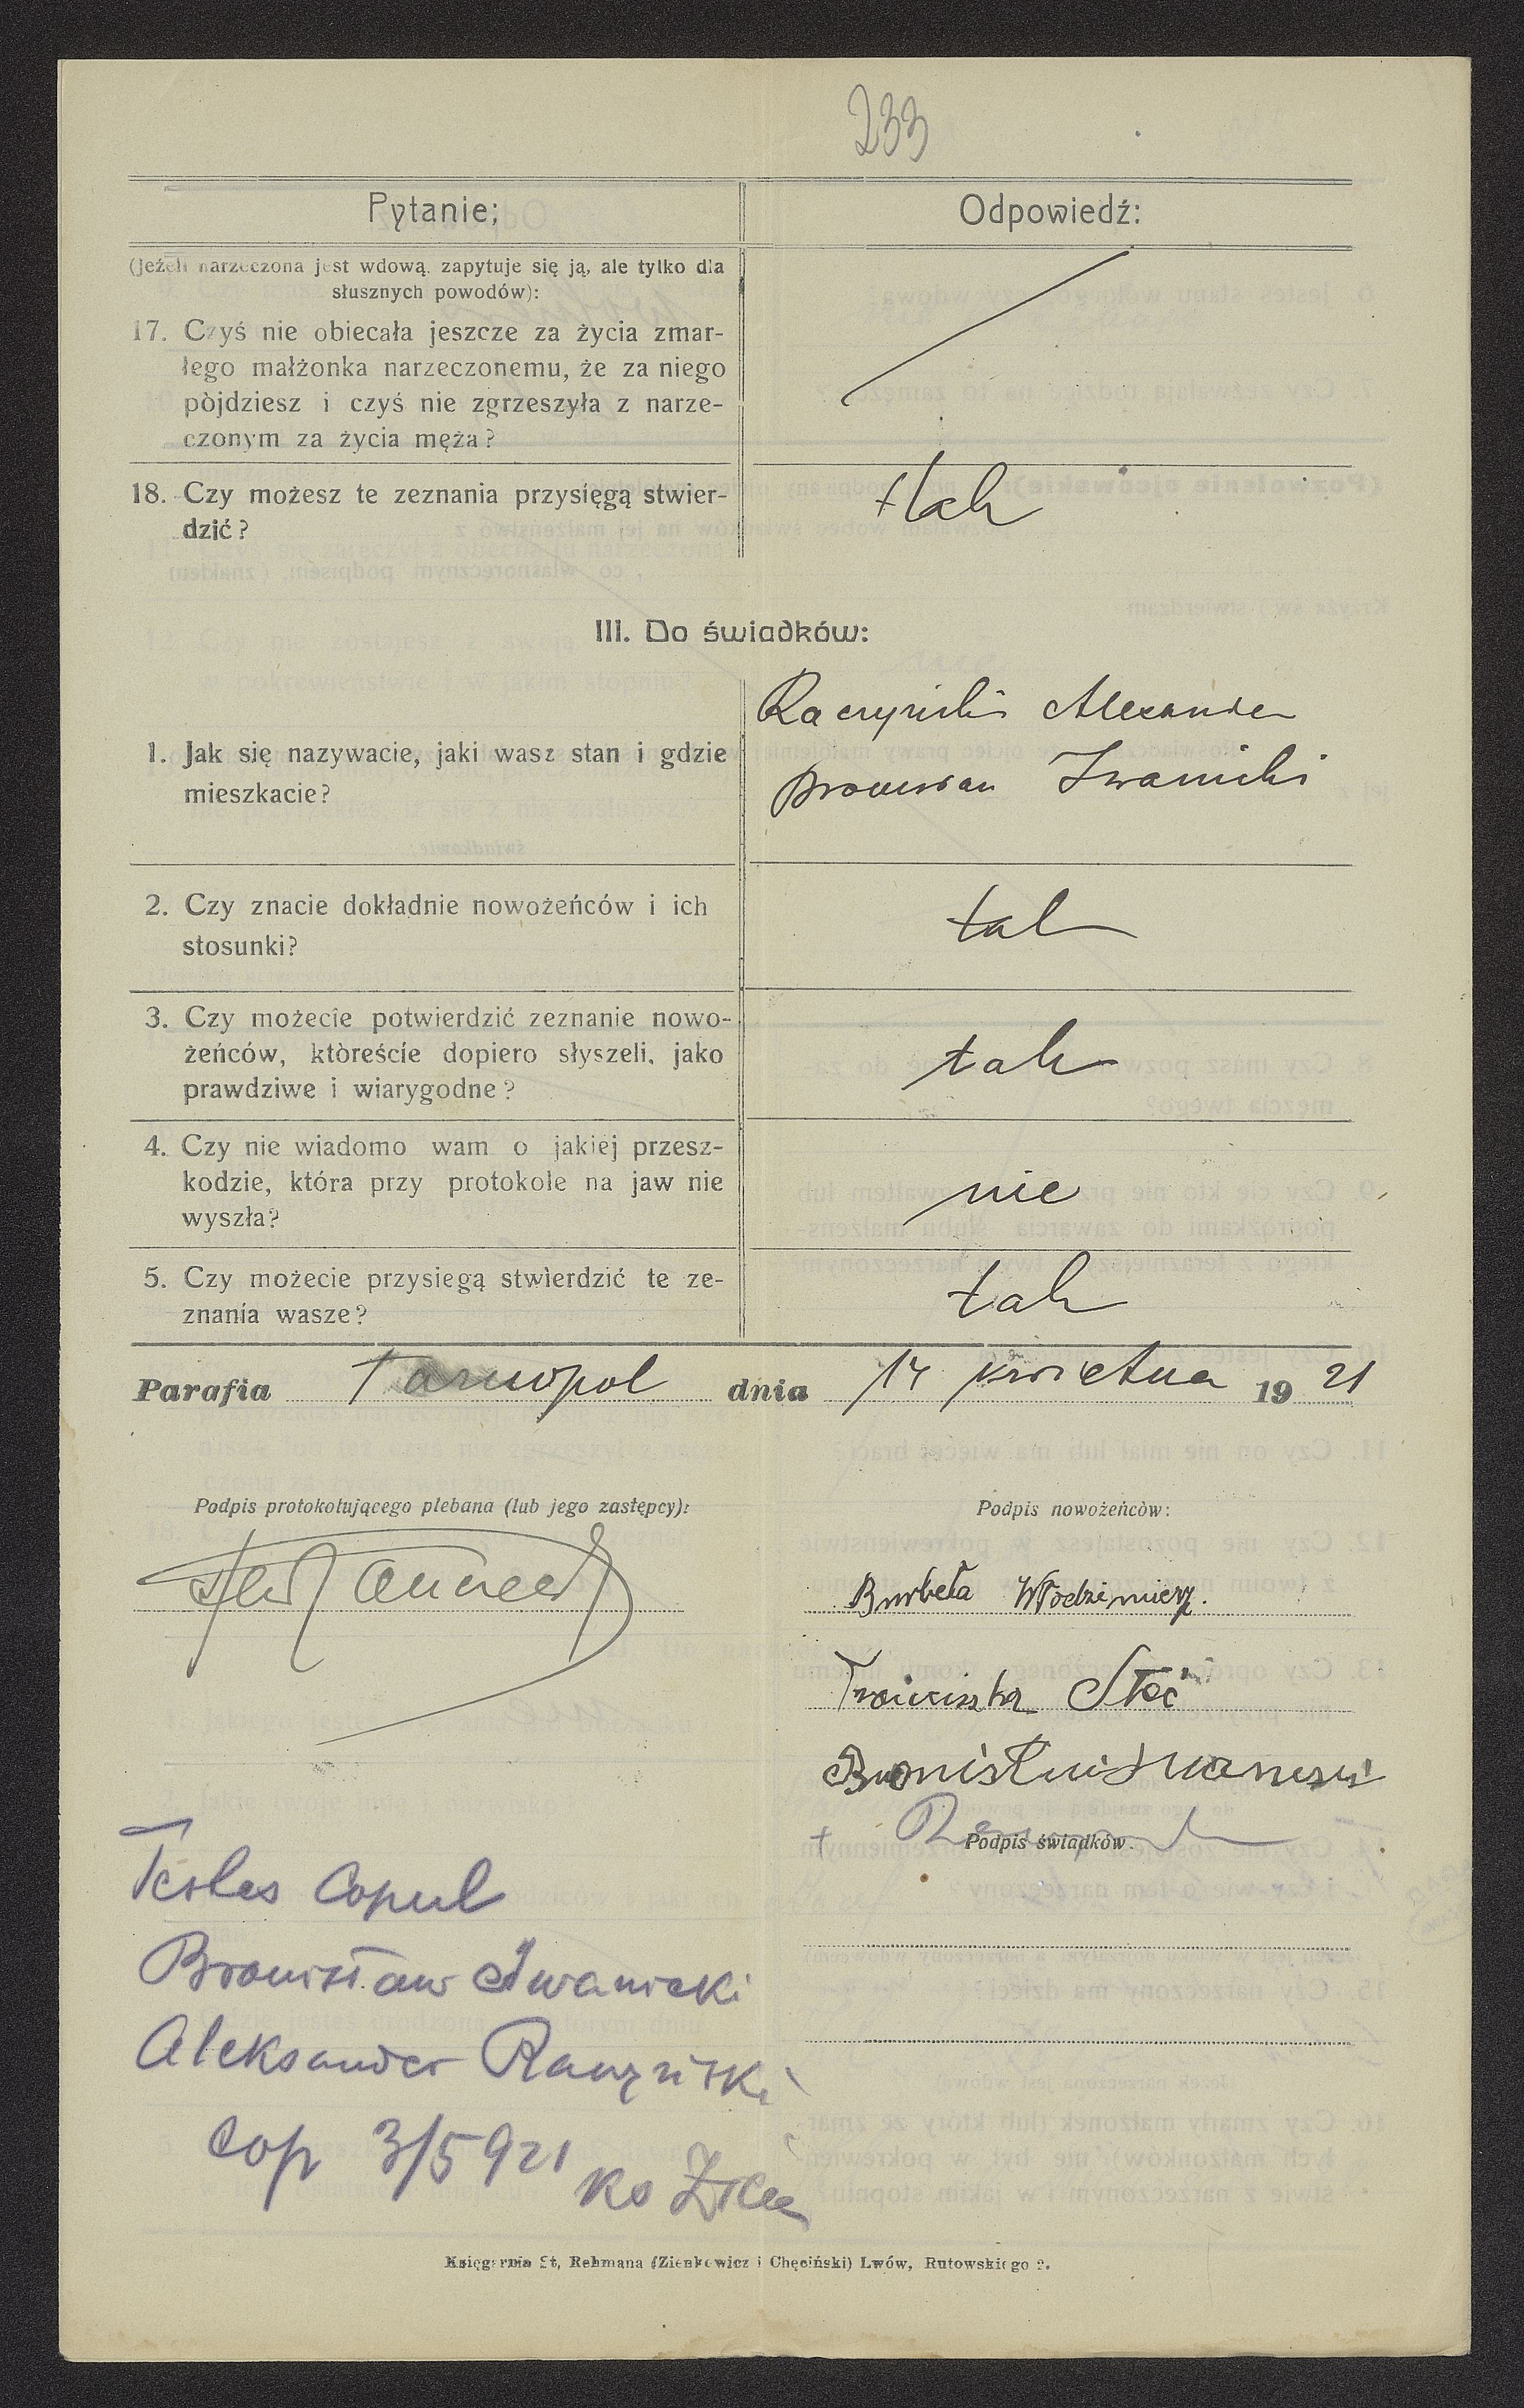 233
Pytanie;
Odpowiedź:
(Jeżeli narzeczona jest wdową. zapytuje się ją, ale tylko dla
słusznych powodów):
17. Czyś nie obiecała jeszcze za życia zmar-
łego małżonka narzeczonemu, że za niego
pòjdziesz i czyś nie zgrzeszyła z narze-
czonym za życia męża?
18. Czy możesz te zeznania przysięgą stwier-
dzić?
tak
III. Do świadków:
1. Jak się nazywacie, jaki wasz stan i gdzie
mieszkacie?
Raczyński Alexander
Bronisław Iwanicki
2. Czy znacie dokładnie nowożeńców i ich
stosunki?
tak
3. Czy możecie potwierdzić zeznanie nowo-
żeńców, któreście dopiero słyszeli, jako
prawdziwe i wiarygodne?
tak
4. Czy nie wiadomo wam o jakiej przesz-
kodzie, która przy protokole na jaw nie
wyszła?
nie
5. Czy możecie przysiegą stwierdzić te ze-
znania wasze?
tak
Parafia Tarnopol dnia 14 kwietna 19 21
Podpis protokołującego plebana (lub jego zastępcy):
Podpis nowożeńców:
Burbeła Włodzimierz.
Franciszka Steć
Podpis świadków.
Testes Copul
Bronisław Iwanicki
Aleksander Raczyński
Cop 3/5 921 ks
Księgarnia St, Rehmana (Zienkowicz i Chęciński) Lwów, Rutowskiego 2.